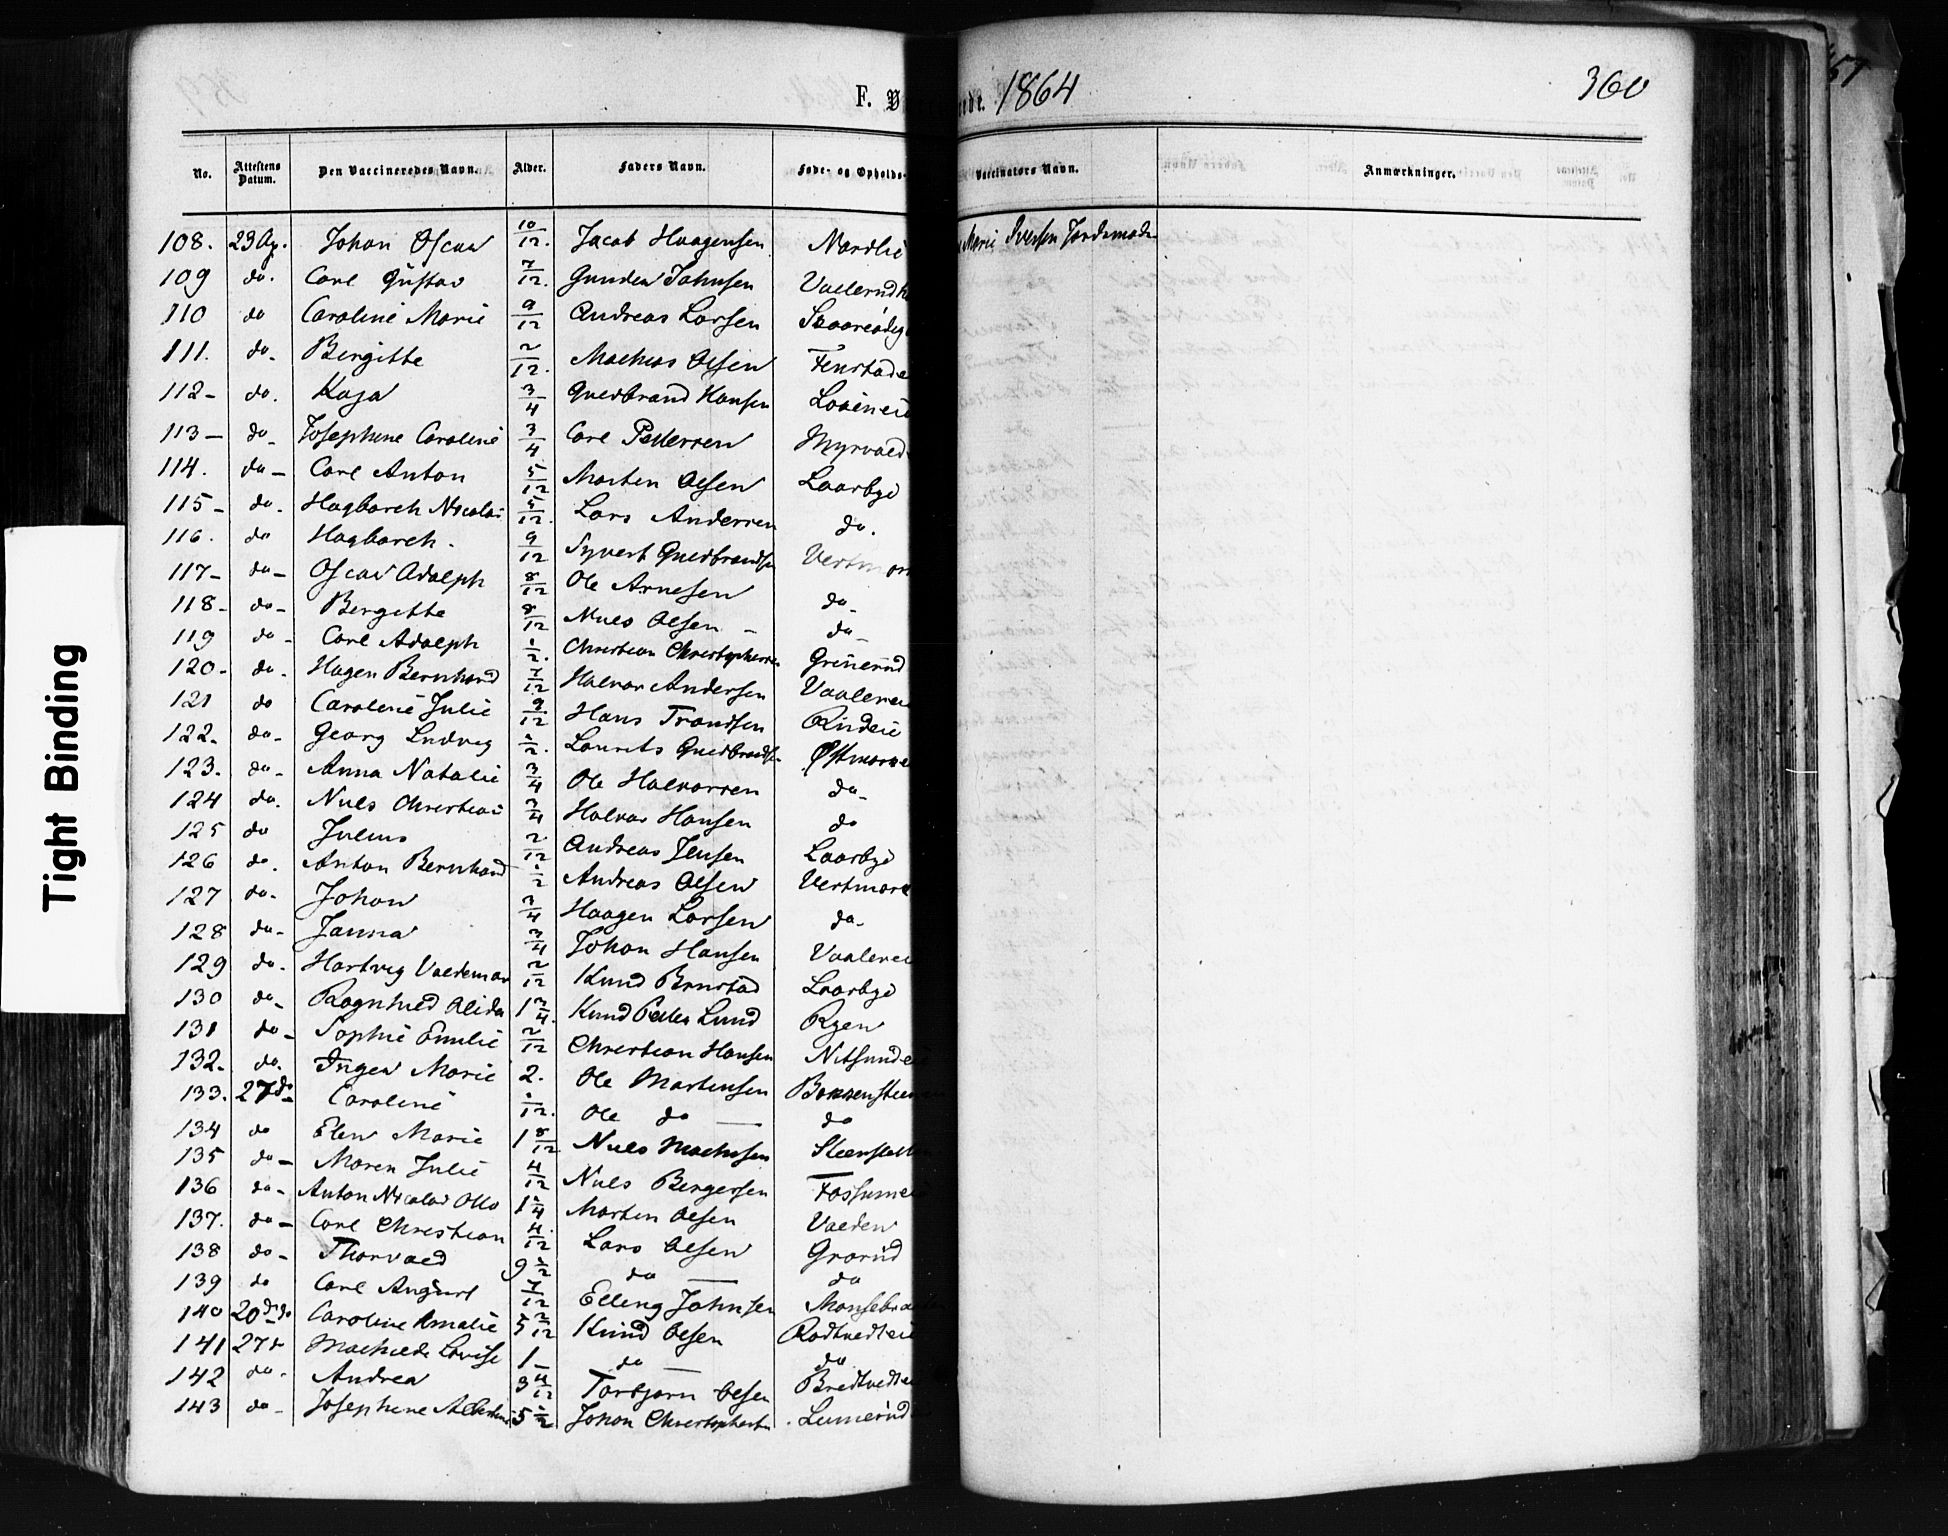 F. V
rede. 1864
360
57
Tight Binding
No. Attestens Datum. Den Vaccineredes Navn. Alder. Faders Navn. Føde- og Opholds- Vaccinators Navn. Anmærkninger.
108. 23 Ap. Johan Oscar 10/12. Jacob Haagensen Nordlie Marie Iversen Jordemoder
109 do. Carl Gustav 7/12. Gunder Johnsen
110 do Caroline Marie 9/12 Andreas Larsen
111. do. Birgitte 2/12. Mathias Olsen Finstade
112- do. Kaja 3/4 Guldbrand Hansen
113- do- Josephine Caroline 3/4 Carl Pettersen Myrvold
114. do- Carl Anton 5/12 Morten Olsen Laarbye
115- do. Hagbarth Nicolai 5/12. Lars Andersen do.
116. do Hagbarth. 9/12 Syvert Guldbrandsen Vestmor
117- do- Oscar Adolph 8/12 Ole Arnesen do-
118- do- Bergitte 8/12 Niels Olsen - do-
119 do- Carl Adolph 1/2. Christian Christophersen Grinerud
120- do. Hagen Bernhard 7/12 Halvor Andersen Vaalerei
121 do Caroline Julie 9/12 Hans Trondsen Rudeie
122- do- Georg Ludvig 1/2. Laurits Guldbrandsen Østmorke
123. do- Anna Natalie 3/4 Ole Halvorsen do-
124 do. Niels Christian 3/4 Halvor Hansen do
125 do Julius 2/12 Andreas Jensen Laarbye
126 do. Anton Bernhard 1/2 Andreas Olsen Vestmork
127 do. Johan 3/4 Haagen Larsen do-
128 do- Janna 3/4 Johan Hansen Vaalerei
129 do. Hartvig Valdemar 2/12 Knud Brustad Laarbye
130 do- Ragnhild Olida 1 3/4. Knud Peder Lund Ryen
131 do- Sophie Emilie 2/12 Christian Hansen Nitsunde
132- do. Inger Marie 2. Ole Martinsen
133. 27 do- Caroline 1/12. Ole do — do
134 do Elen Marie 1 8/12 Niels Mathisen
135 do- Maren Julie 4/12 Niels Bergersen Fossumei
136 do- Anton Nicolai Otto 1 1/4 Morten Olsen Valden
137. do- Carl Christian 4/12 Lars Olsen Grorud
138 do- Thorvald 9 1/2 do — do
139 do Carl August 7/12 Elling Johnsen
140 20 do Caroline Amalie 5 2/12 Knud Olsen Rødtvedteie
141 27 Mathilde Lovise 1- do — do
142 do. Andrea 3 4/12 Torbjørn Olsen Bredtvedte
143 do- Josephine Albertine 5 1/2 Johan Christophersen